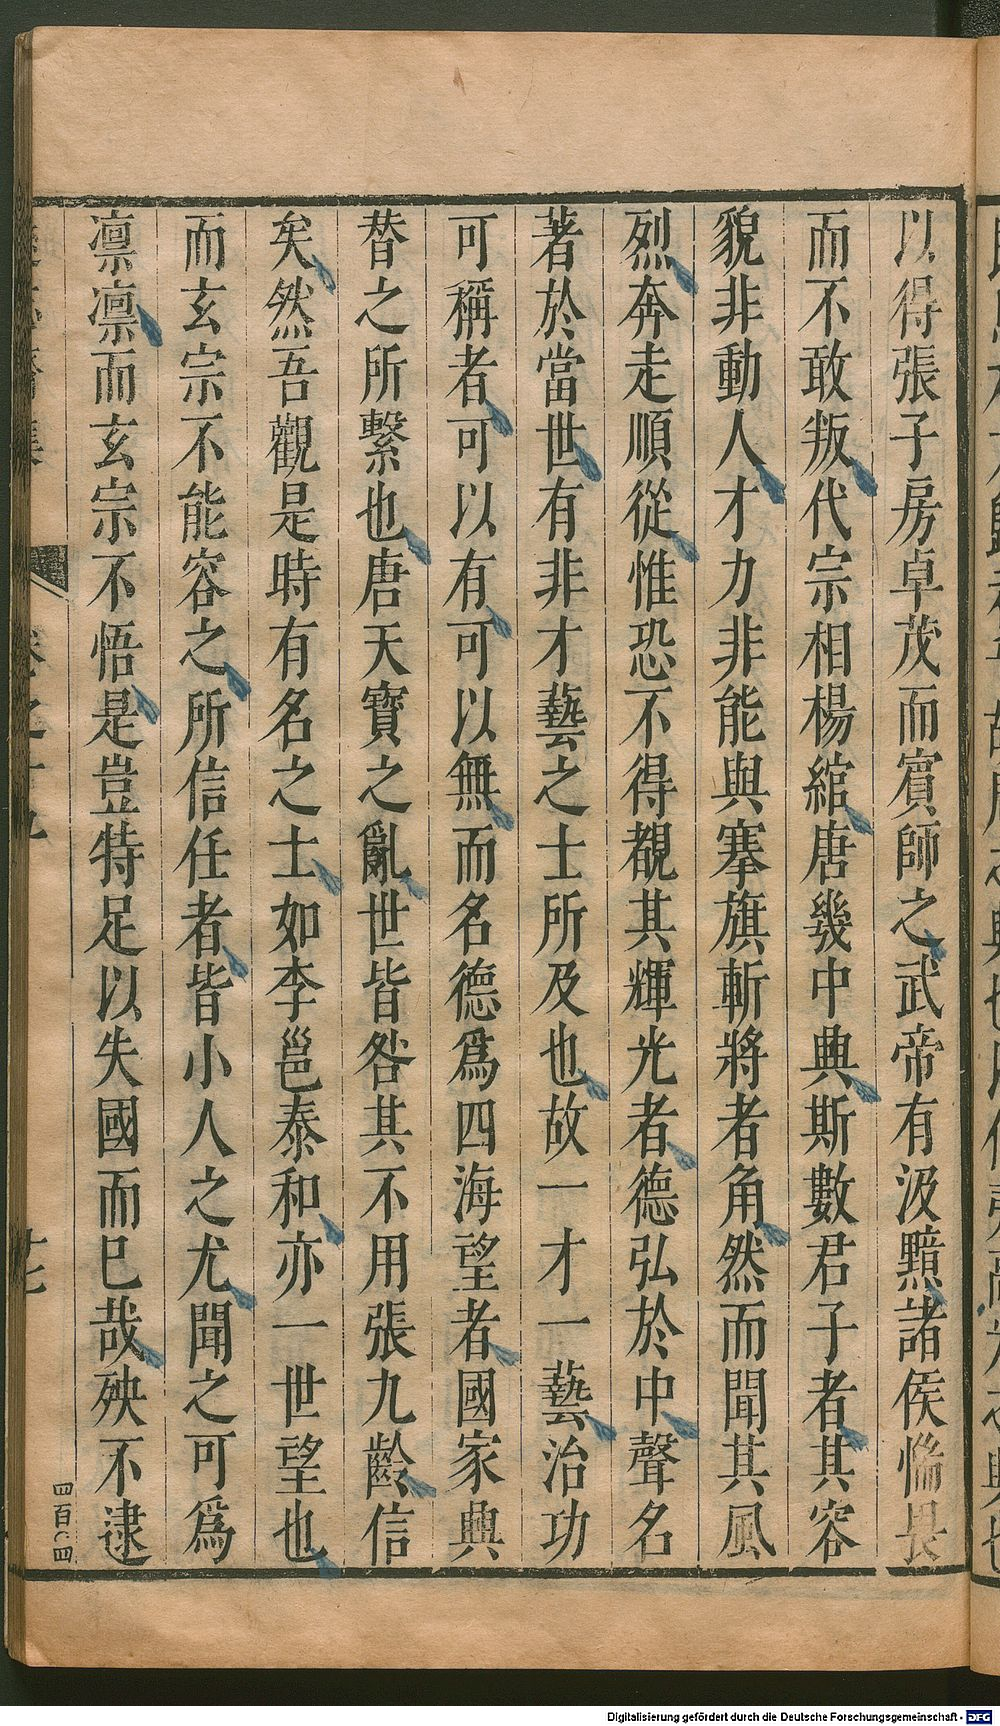 以得張子房卓茂而賓師之武帝有汲黯諸侯惴畏
而不敢叛代宗相楊綰唐幾中興斯數君子者其容
貌非動人才力非能與搴旗斬將者角然而聞其風
烈奔走順從惟恐不得覩其輝光者德弘於中聲名
著於當世有非才藝之士所及也故一才一藝治功
可稱者可以有可以無而名德爲四海望者國家興
替之所繫也唐天寶之亂世皆咎其不用張九齡信
矣然吾觀是時有名之士如李邕泰和亦一世望也
而玄宗不能容之所信任者皆小人之尤聞之可爲
凛凛而玄宗不悟是豈特足以失國而巳哉殃不逮
四百〇四
Digitalisierung gefördert durch die Deutsche Forschungsgemeinschaft - DFG